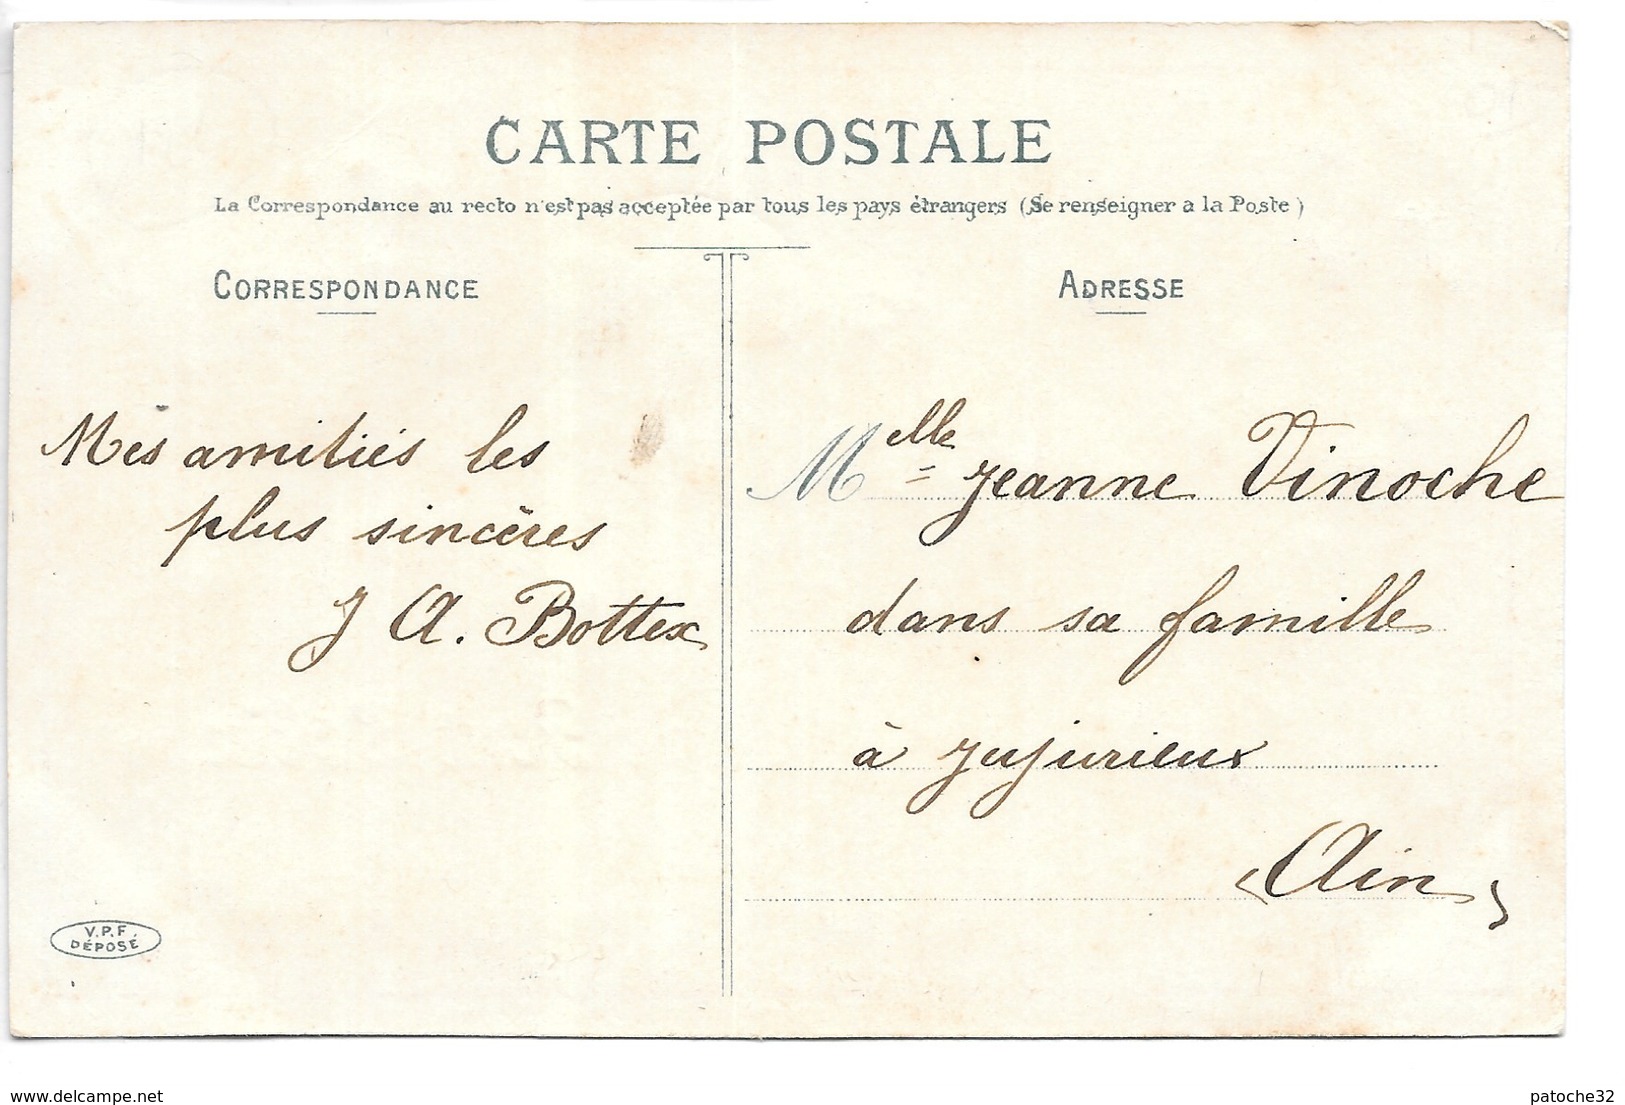 CARTE POSTALE
La Correspondance au recto n'est pas acceptée par tous les pays étrangers (Se renseigner a la Poste)
CORRESPONDANCE
Mes amitiés les
plus sincères
J A. Bottex
V.P.F.
DÉPOSÉ
ADRESSE
Melle Jeanne Vinoche
dans sa famille
à Jujurieux
(Ain)
www.delcampe.net
patoche32